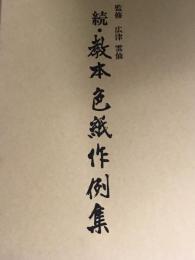 監修 広津雲仙
続・教本色紙作例集